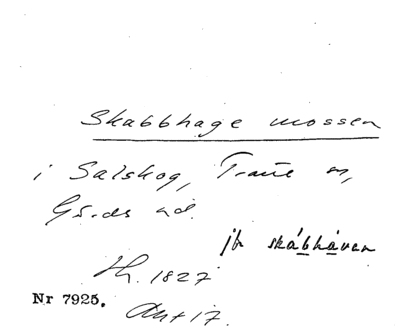 Skabbhage mossen
i Salskog, Trane sn,
Gärds hd.
jfr skábháven
Th. 1827
Nr 7925.
Akt 17.